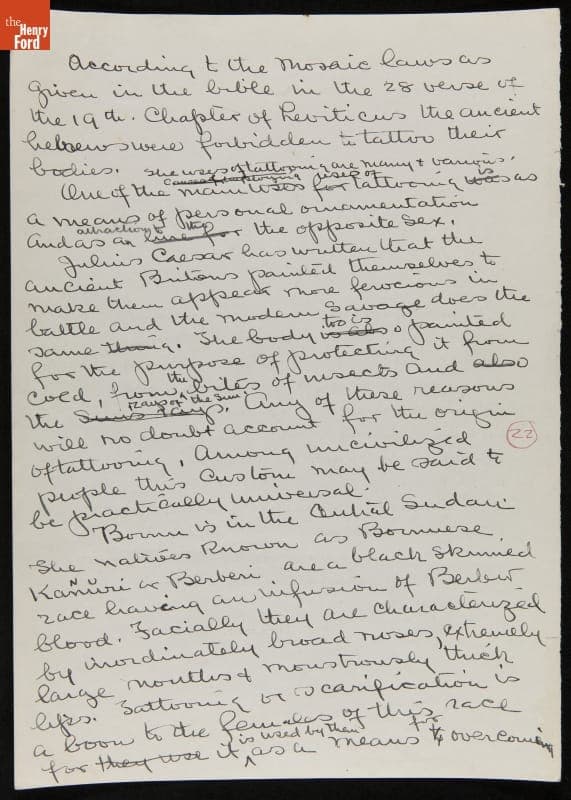 the
Henry
Ford
According to the Mosaic laws as
given in the bible in the 28 verse of
the 19th. Chapter of Leviticus the ancient
hebrews were forbidden to tattoo their
bodies. The uses of tattooing are many & varyius.
uses of is
One of the main uses for tattooing was as
a means of personal ornamentation
attraction to the
and as an line for the opposite sex.
Julius Caesar has written that the
ancient Britons painted themselves to
make them appear more ferocious in
battle and the modern Savage does the
too is
same thing. The body is also painted
for the purpose of protecting it from
the
cold, from bites of insects and also
Rays of the sun
the Suns rays. Any of these reasons
will no doubt account for the origin
of tattooing, Among uncivilized
22
people this custom may be said to
be practically universal.
Bornu is in the Central Sudan.
The natives known as Bornuese
Kanŭri or Berberi are a black skinned
race having an infusion of Berber
blood. Facially they are characterized
by inordinately broad noses, extremely
large mouths & monstrously thick
lips. Tattooing or scarification is
a boon to the females of this race
is used by them for
for they use it as a means to overcoming